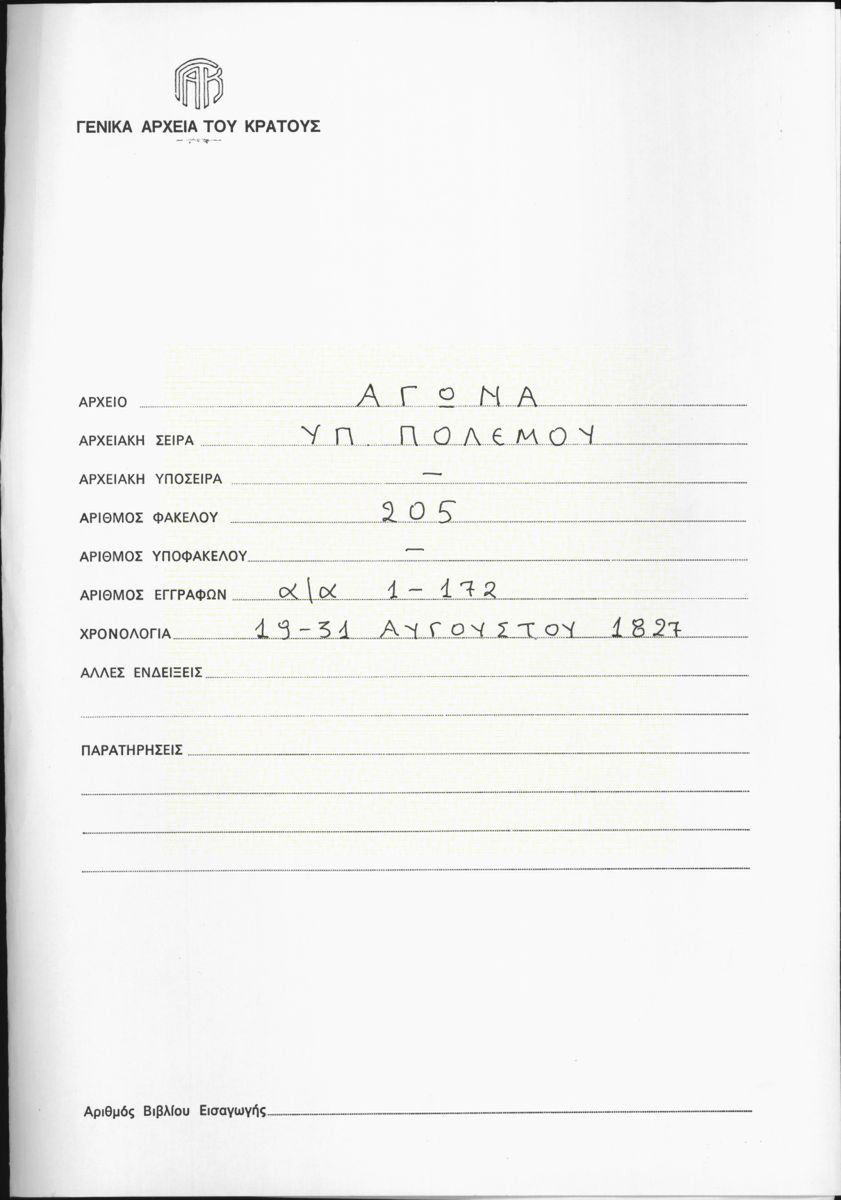 ΓΑΚ
ΓΕΝΙΚΑ ΑΡΧΕΙΑ ΤΟΥ ΚΡΑΤΟΥΣ
ΑΡΧΕΙΟ ΑΓΩΝΑ
ΑΡΧΕΙΑΚΗ ΣΕΙΡΑ ΥΠ. ΠΟΛΕΜΟΥ
ΑΡΧΕΙΑΚΗ ΥΠΟΣΕΙΡΑ —
ΑΡΙΘΜΟΣ ΦΑΚΕΛΟΥ 205
ΑΡΙΘΜΟΣ ΥΠΟΦΑΚΕΛΟΥ —
ΑΡΙΘΜΟΣ ΕΓΓΡΑΦΩΝ α/α 1 – 172
ΧΡΟΝΟΛΟΓΙΑ 19-31 ΑΥΓΟΥΣΤΟΥ 1827
ΑΛΛΕΣ ΕΝΔΕΙΞΕΙΣ
ΠΑΡΑΤΗΡΗΣΕΙΣ
Αριθμός Βιβλίου Εισαγωγής